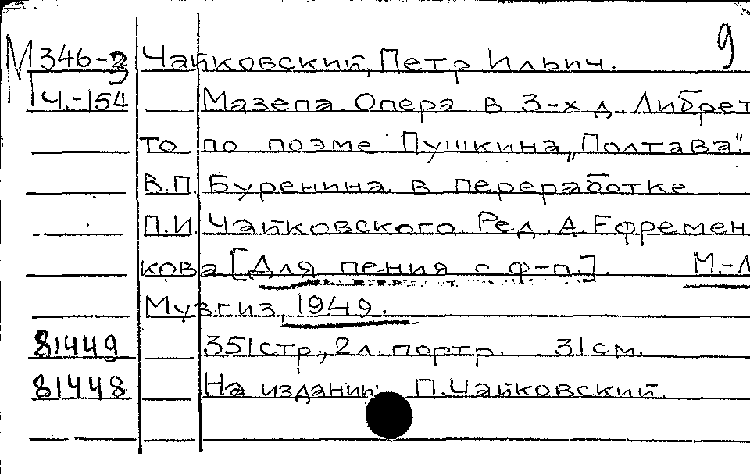 9
М 346-3 Чайковский, Петр Ильич.
Ч.-154 Мазепа. Опера в 3-х д. Либрет
то по поэме Пушкина „Полтава"
В.П. Буренина в переработке
П.И. Чайковского. Ред. А. Ефремен
кова [Для пения с ф-п.]. М.-Л
Музгиз, 1949.
81449 351стр., 2л. портр. 31см.
81448 На издании: П. Чайковский.